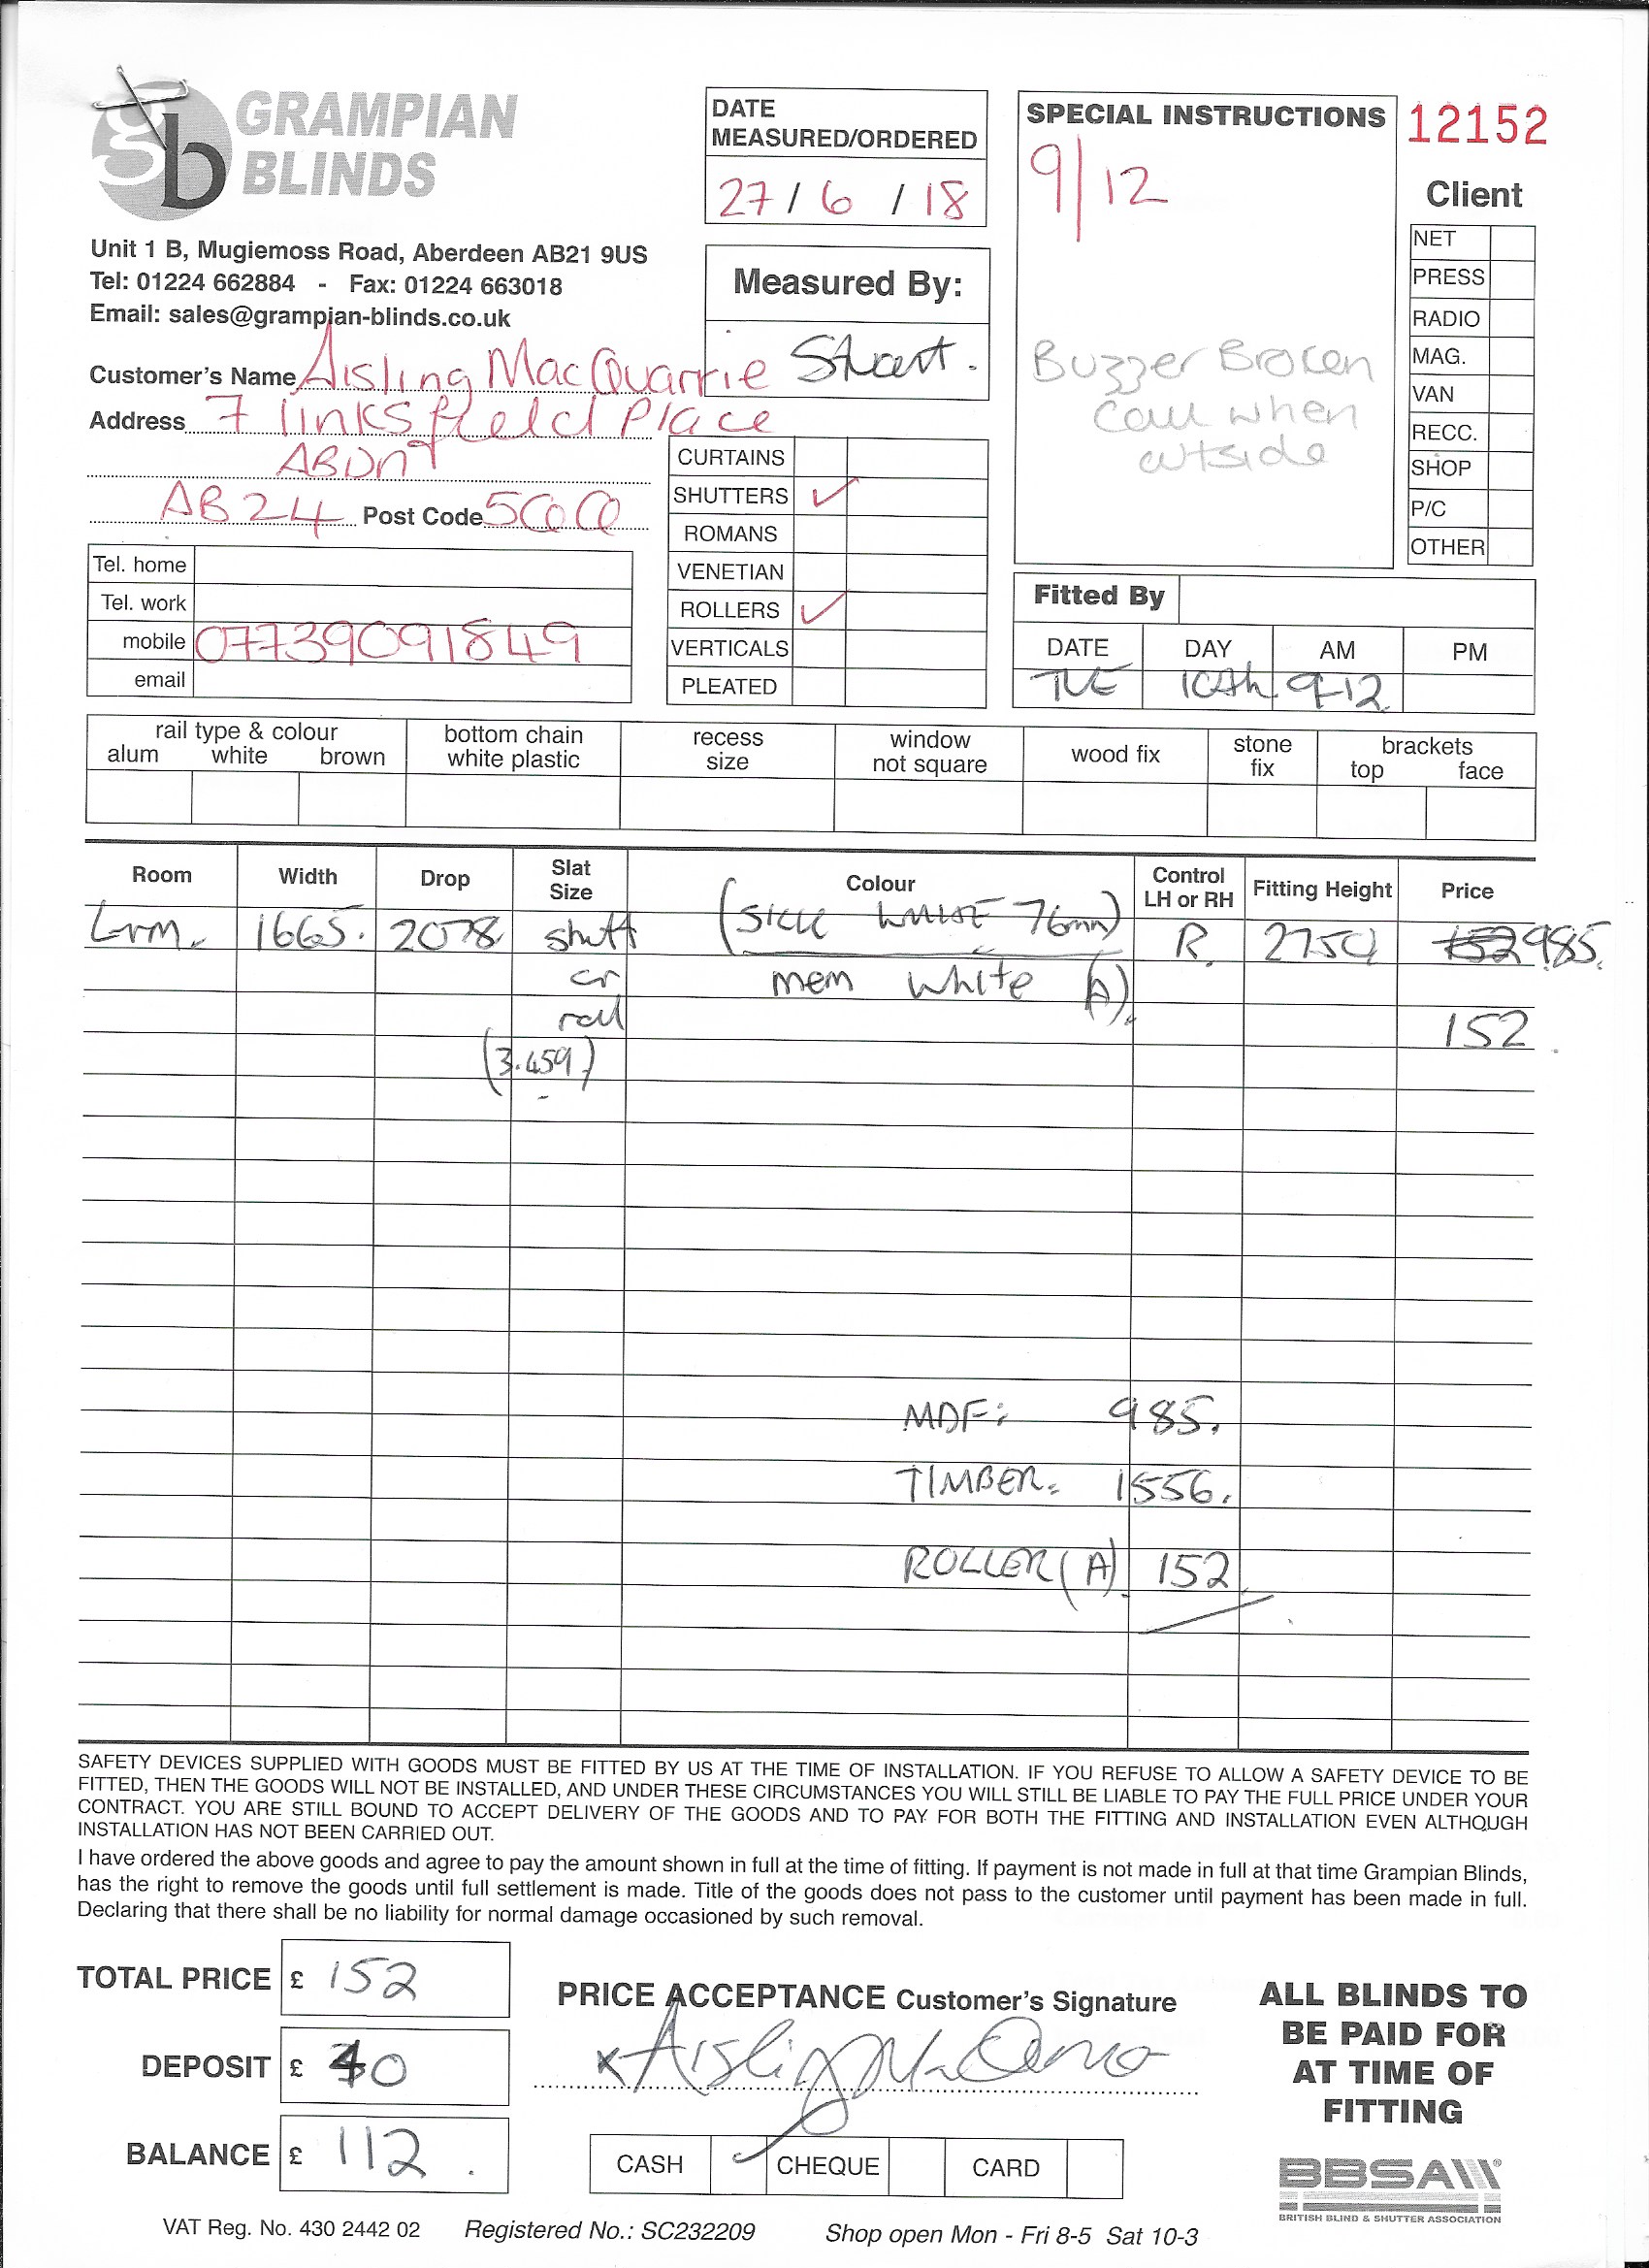 GRAMPIAN
BLINDS
Unit 1 B, Mugiemoss Road, Aberdeen AB21 9US
Tel: 01224 662884 - Fax: 01224 663018
Email: sales@grampian-blinds.co.uk
DATE
MEASURED/ORDERED
27 / 6 / 18
Measured By:
Stuart.
SPECIAL INSTRUCTIONS
9/12
Buzzer Broken
Call when
outside
12152
Client
NET
PRESS
RADIO
MAG.
VAN
RECC.
SHOP
P/C
OTHER
Customer's Name Aisling MacQuarrie
Address 7 linksfield Place
ABDN
AB24 Post Code
Tel. home
Tel. work
mobile 07739091849
email
CURTAINS
SHUTTERS ✓
ROMANS
VENETIAN
ROLLERS ✓
VERTICALS
PLEATED
Fitted By
DATE DAY AM PM
TUE 10th 9-12
rail type & colour bottom chain recess window wood fix stone brackets
alum white brown white plastic size not square fix top face
Room Width Drop Slat Size Colour Control LH or RH Fitting Height Price
Lrm. 1665. 2078 shutt (SILK WHITE 76mm) R. 2750 152 985.
or mem white (A).
roll 152
(3.459)
MDF: 985.
TIMBER: 1556.
ROLLER (A) 152
SAFETY DEVICES SUPPLIED WITH GOODS MUST BE FITTED BY US AT THE TIME OF INSTALLATION. IF YOU REFUSE TO ALLOW A SAFETY DEVICE TO BE
FITTED, THEN THE GOODS WILL NOT BE INSTALLED, AND UNDER THESE CIRCUMSTANCES YOU WILL STILL BE LIABLE TO PAY THE FULL PRICE UNDER YOUR
CONTRACT. YOU ARE STILL BOUND TO ACCEPT DELIVERY OF THE GOODS AND TO PAY FOR BOTH THE FITTING AND INSTALLATION EVEN ALTHOUGH
INSTALLATION HAS NOT BEEN CARRIED OUT.
I have ordered the above goods and agree to pay the amount shown in full at the time of fitting. If payment is not made in full at that time Grampian Blinds,
has the right to remove the goods until full settlement is made. Title of the goods does not pass to the customer until payment has been made in full.
Declaring that there shall be no liability for normal damage occasioned by such removal.
TOTAL PRICE £ 152
DEPOSIT £ 40
BALANCE £ 112.
PRICE ACCEPTANCE Customer's Signature
x Aisling
CASH ✓ CHEQUE CARD
ALL BLINDS TO
BE PAID FOR
AT TIME OF
FITTING
BBSA
BRITISH BLIND & SHUTTER ASSOCIATION
VAT Reg. No. 430 2442 02 Registered No.: SC232209 Shop open Mon - Fri 8-5 Sat 10-3